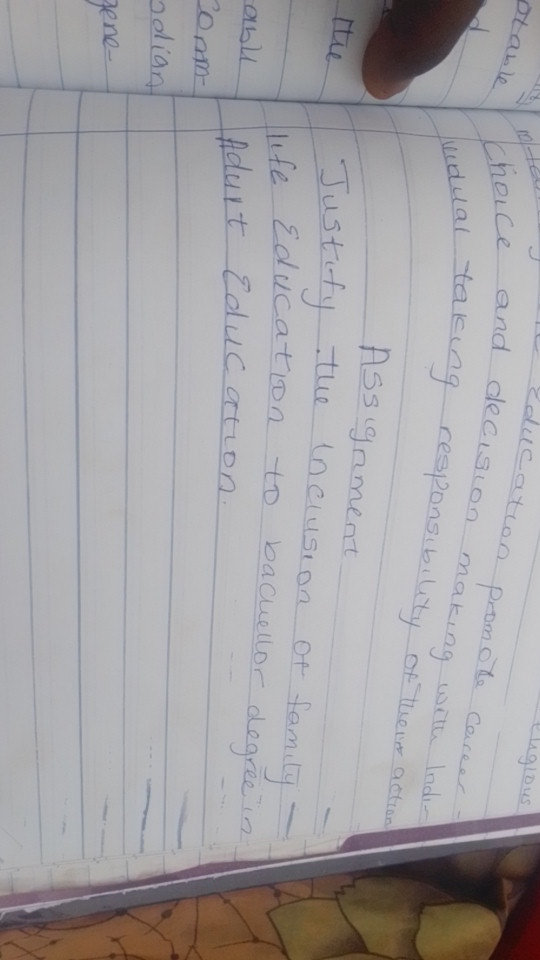 the
able
Comm-
odian
gene-
Education
choice and decision making with Indi-
vidual taking responsibility of their action
Assignment
Justify the inclusion of family
life Education to bachellor degree in
Adult Education.